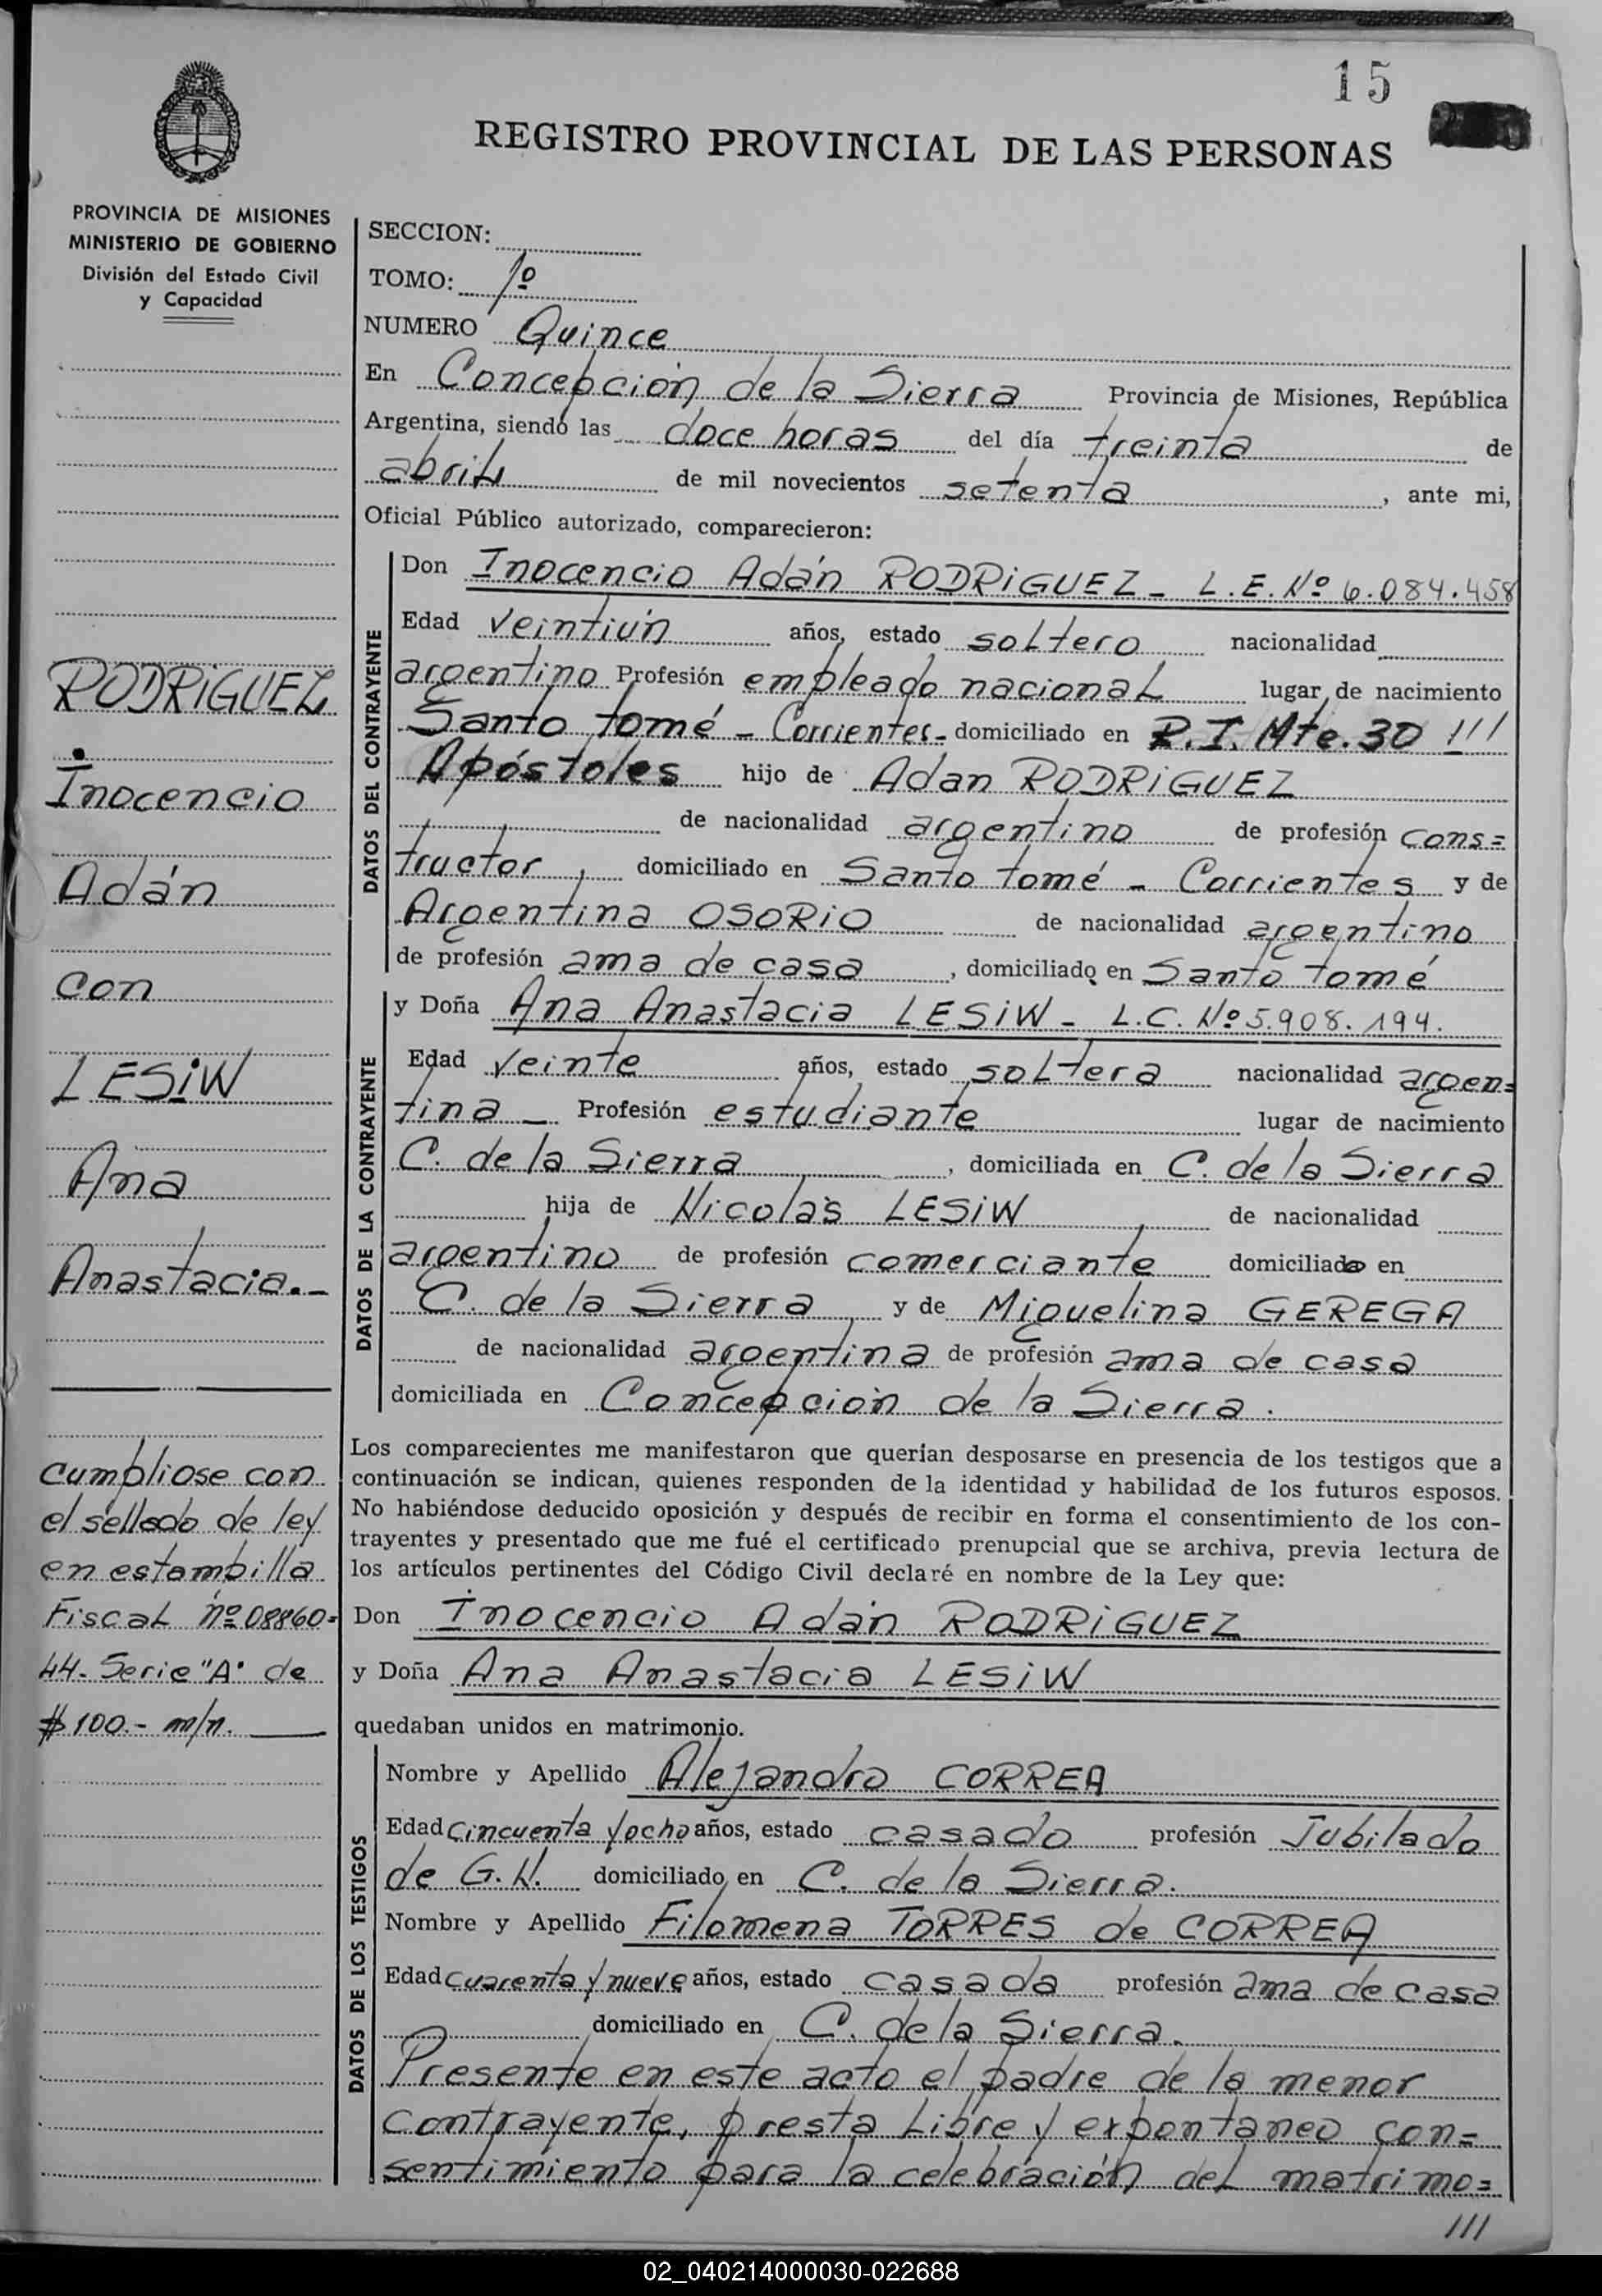 15
REGISTRO PROVINCIAL DE LAS PERSONAS
PROVINCIA DE MISIONES
MINISTERIO DE GOBIERNO
División del Estado Civil
y Capacidad
RODRIGUEZ
Inocencio
Adán
con
LESIW
Ana
Anastacia.-
Cumpliose con
el sellado de ley
en estampilla
Fiscal nº 08860=
44- Serie "A" de
$ 100.- m/n.
SECCION:
TOMO: 1º
NUMERO Quince
En Concepción de la Sierra Provincia de Misiones, República
Argentina, siendo las doce horas del día treinta de
abril de mil novecientos setenta, ante mi,
Oficial Público autorizado, comparecieron:
DATOS DEL CONTRAYENTE
Don Inocencio Adán RODRIGUEZ - L.E. Nº 6.084.458
Edad veintiún años, estado soltero nacionalidad
argentino Profesión empleado nacional lugar de nacimiento
Santo tomé - Corrientes- domiciliado en R.I. Mte. 30 ///
Apóstoles hijo de Adan RODRIGUEZ
de nacionalidad argentino de profesión cons=
tructor, domiciliado en Santo tomé - Corrientes y de
Argentina OSORIO de nacionalidad argentino
de profesión ama de casa, domiciliado en Santo tomé
DATOS DE LA CONTRAYENTE
y Doña Ana Anastacia LESIW - L.C. Nº 5.908.194.
Edad veinte años, estado soltera nacionalidad argen=
tina - Profesión estudiante lugar de nacimiento
C. de la Sierra, domiciliada en C. de la Sierra
hija de Nicolás LESIW de nacionalidad
argentino de profesión comerciante domiciliado en
C. de la Sierra y de Miquelina GEREGA
de nacionalidad argentina de profesión ama de casa
domiciliada en Concepción de la Sierra.
Los comparecientes me manifestaron que querían desposarse en presencia de los testigos que a
continuación se indican, quienes responden de la identidad y habilidad de los futuros esposos.
No habiéndose deducido oposición y después de recibir en forma el consentimiento de los con-
trayentes y presentado que me fué el certificado prenupcial que se archiva, previa lectura de
los artículos pertinentes del Código Civil declaré en nombre de la Ley que:
Don Inocencio Adán RODRIGUEZ
y Doña Ana Anastacia LESIW
quedaban unidos en matrimonio.
DATOS DE LOS TESTIGOS
Nombre y Apellido Alejandro CORREA
Edad cincuenta y ocho años, estado casado profesión Jubilado
de G.N. domiciliado en C. de la Sierra.
Nombre y Apellido Filomena TORRES de CORREA
Edad cuarenta y nueve años, estado casada profesión ama de casa
domiciliado en C. de la Sierra.
Presente en este acto el padre de la menor
contrayente, presta libre y expontaneo con=
sentimiento para la celebración del matrimo=
///
02_040214000030-022688